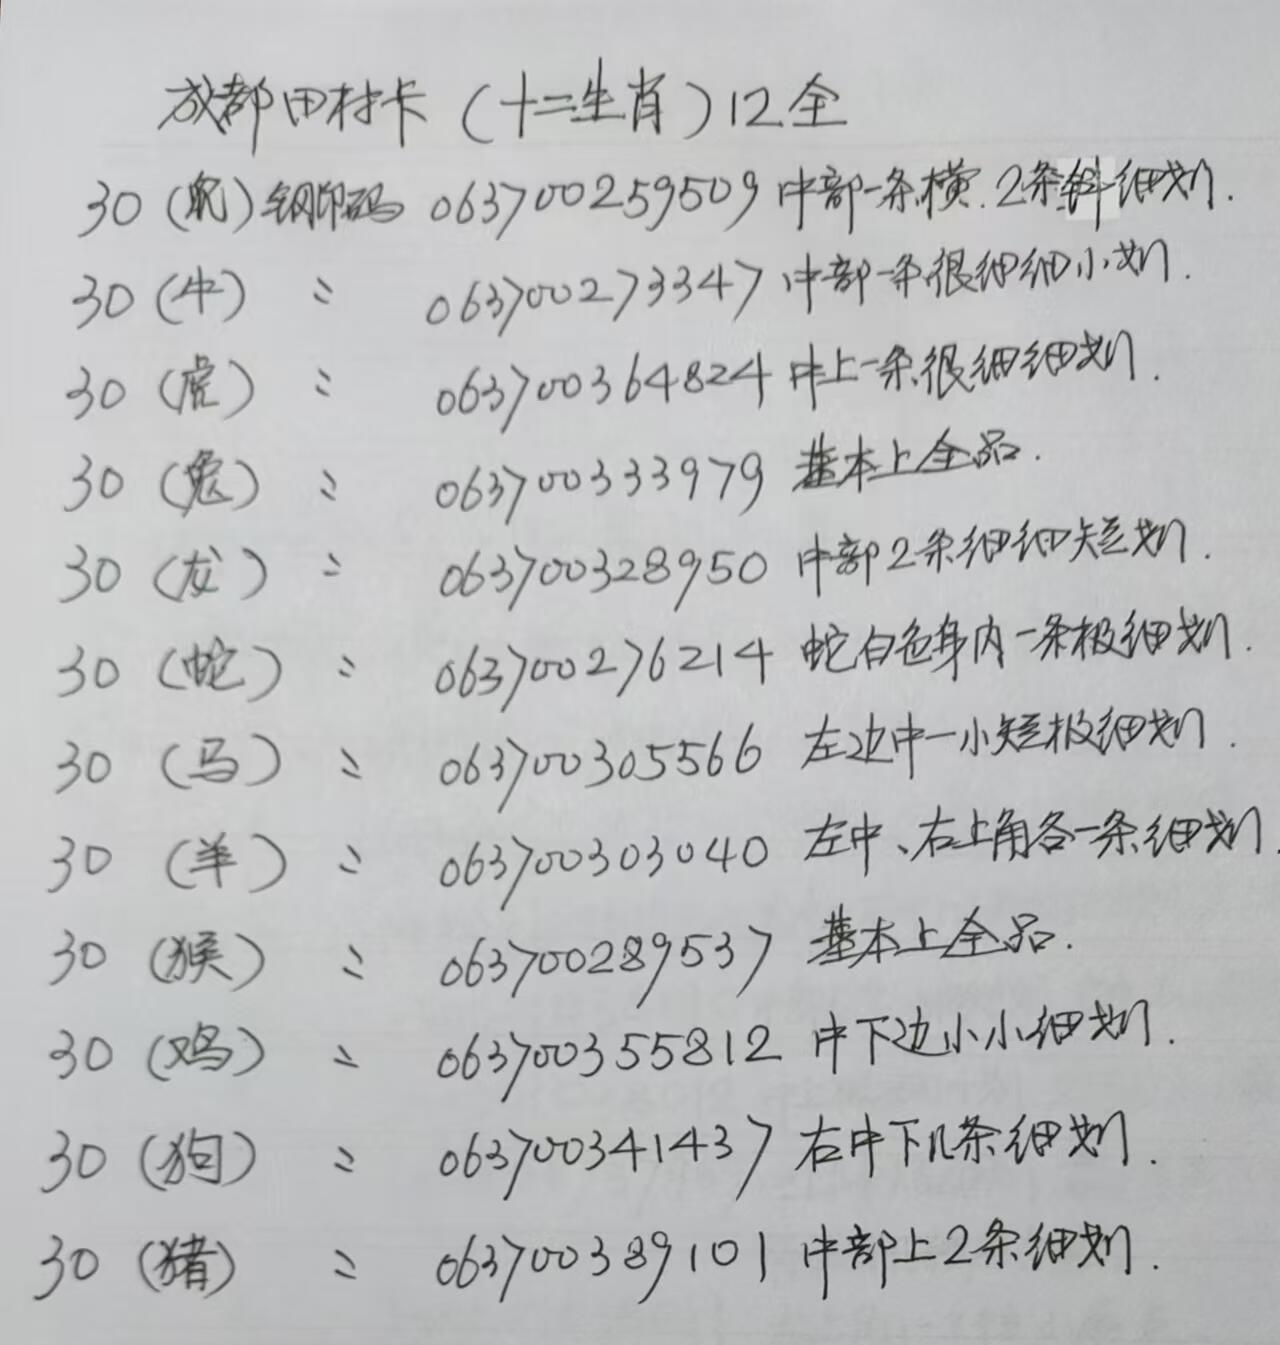 成都田村卡（十二生肖）12全
30（鼠）钢印码 063700259509 中部一条横.2条斜细划.
30（牛） 〃 063700273347 中部一条很细细小划.
30（虎） 〃 063700364824 中上一条很细细划.
30（兔） 〃 063700333979 基本上全品.
30（龙） 〃 063700328950 中部2条细细短划.
30（蛇） 〃 063700276214 蛇白色身内一条极细划.
30（马） 〃 063700305566 左边中一小短极细划.
30（羊） 〃 063700303040 左中、右上角各一条细划.
30（猴） 〃 063700289537 基本上全品.
30（鸡） 〃 063700355812 中下边小小细划.
30（狗） 〃 063700341437 右中下几条细划.
30（猪） 〃 063700389101 中部上2条细划.